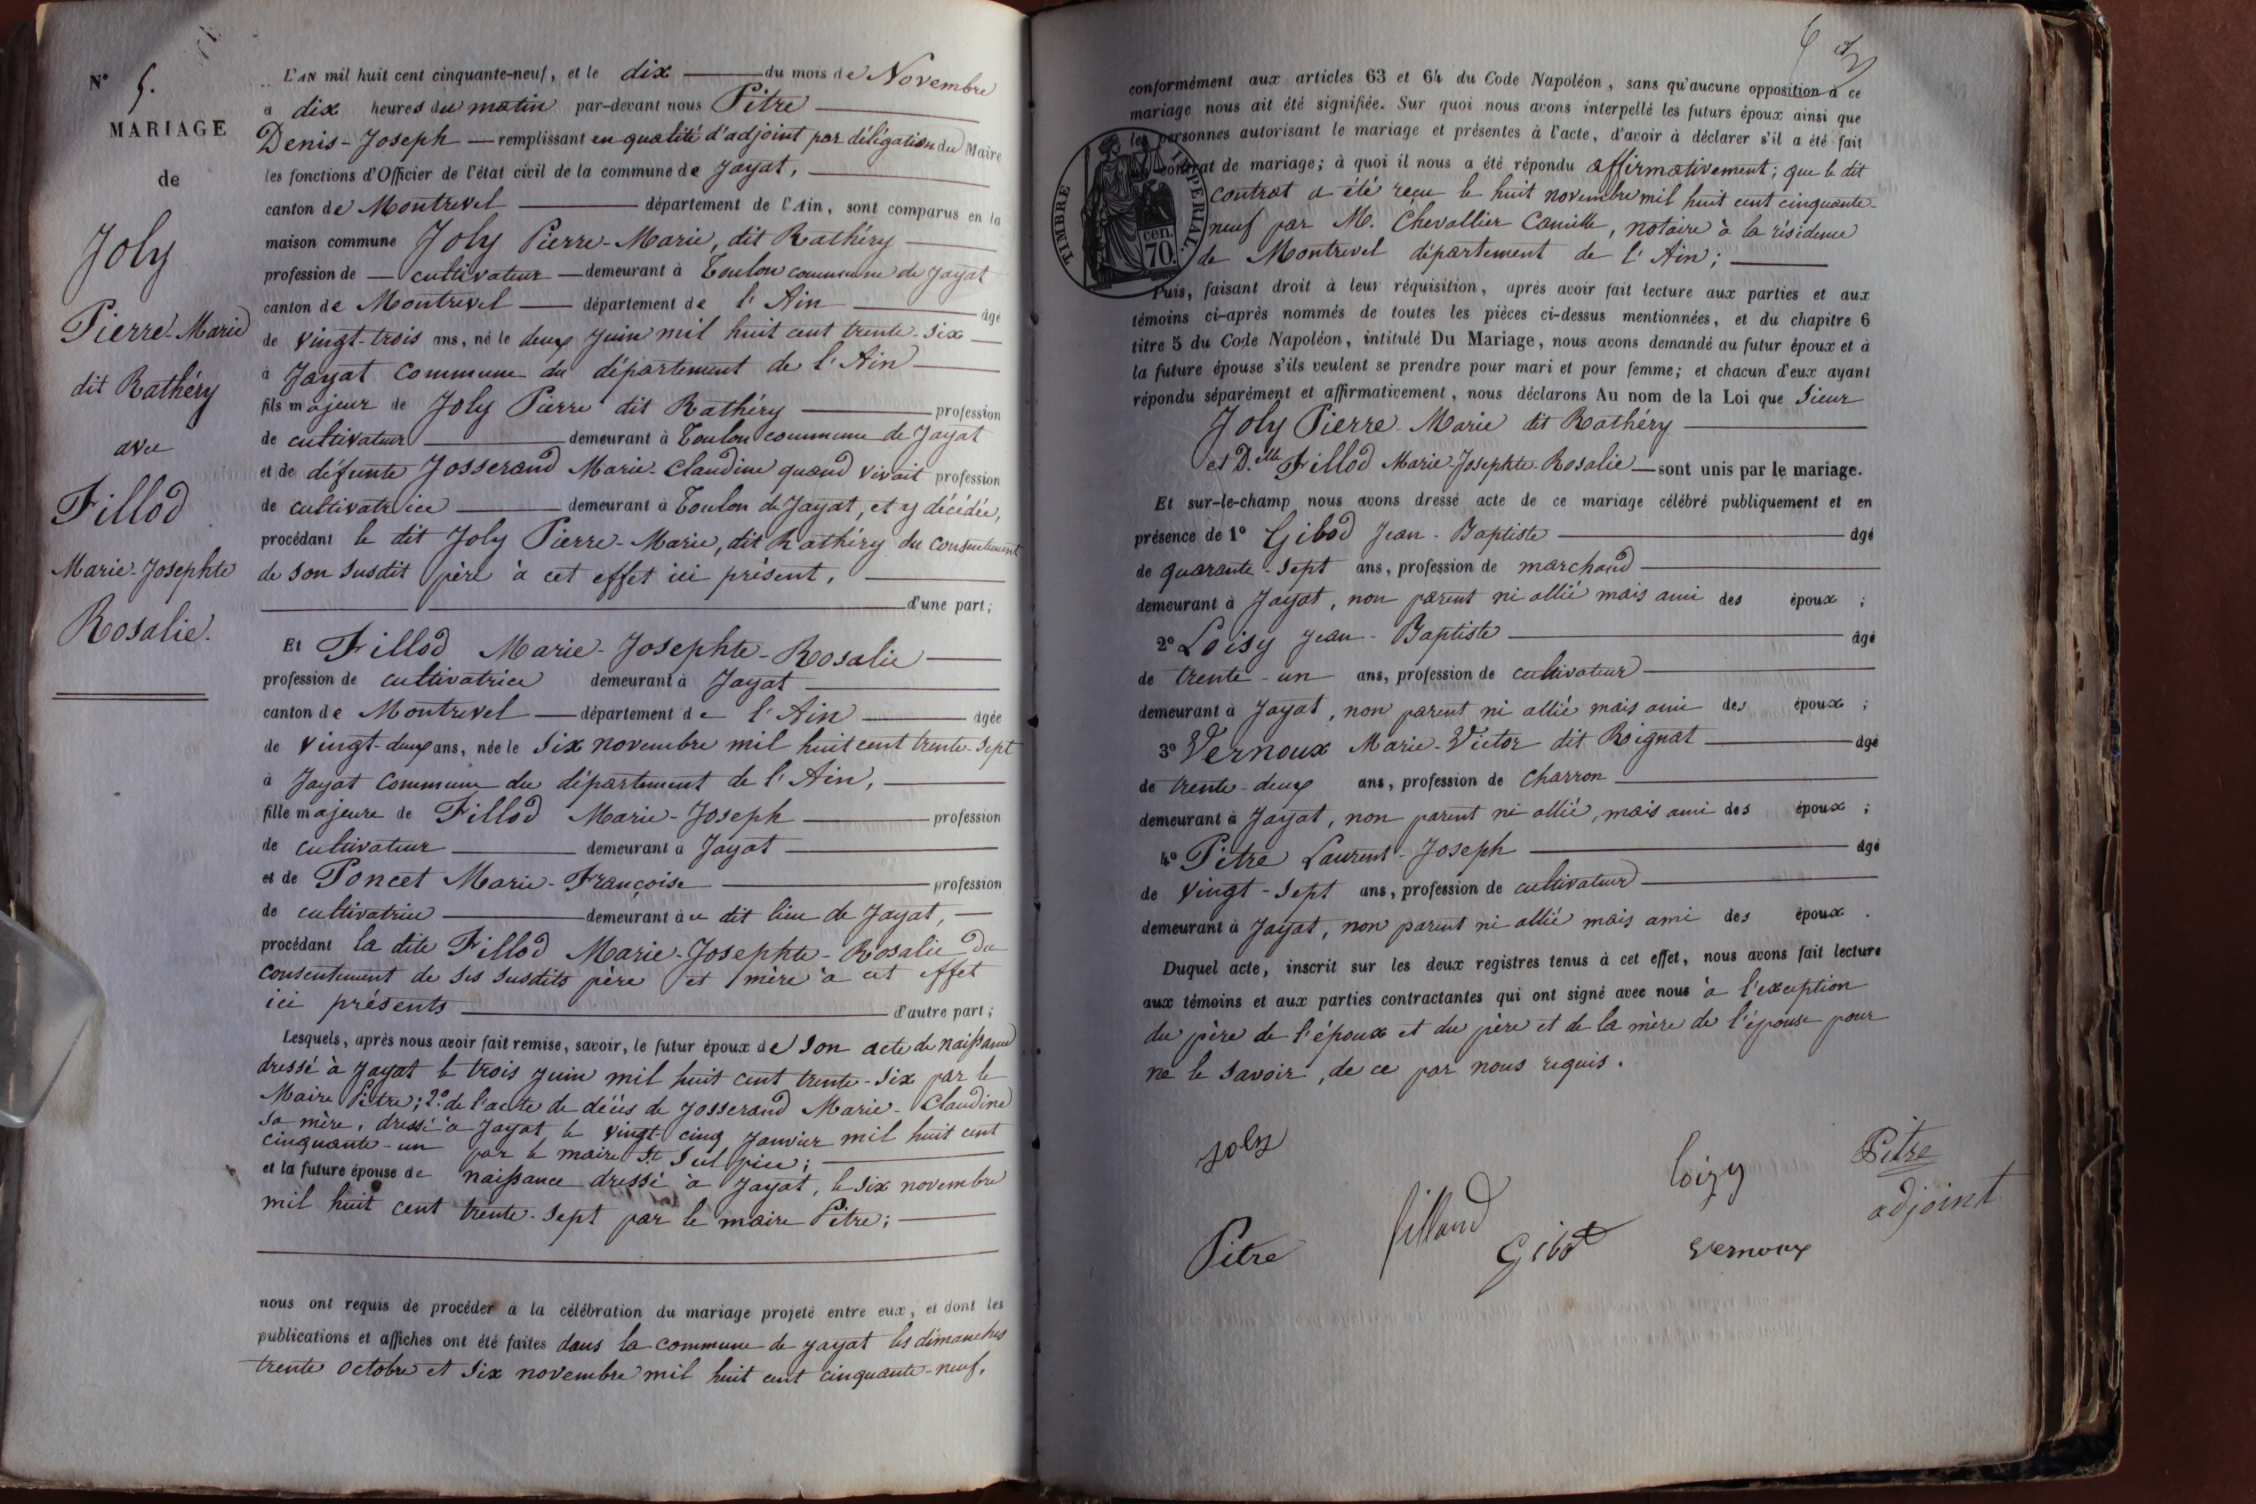 N° 5.
MARIAGE
de
Joly
Pierre-Marie
dit Rathéry
avec
Fillod
Marie-Josephte
Rosalie.
L'AN mil huit cent cinquante-neuf, et le dix du mois de Novembre
à dix heures du matin par-devant nous Pitre
Denis-Joseph remplissant en qualité d'adjoint par délégation du Maire
les fonctions d'Officier de l'état civil de la commune de Jayat,
canton de Montrevel département de l'Ain, sont comparus en la
maison commune Joly Pierre-Marie, dit Rathéry
profession de cultivateur demeurant à Toulon commune de Jayat
canton de Montrevel département de l'Ain âgé
de vingt-trois ans, né le deux Juin mil huit cent trente-six
à Jayat commune du département de l'Ain
fils majeur de Joly Pierre dit Rathéry profession
de cultivateur demeurant à Toulon commune de Jayat
et de défunte Josserand Marie-Claudine quand vivait profession
de cultivatrice demeurant à Toulon de Jayat, et y décédée,
procédant le dit Joly Pierre-Marie, dit Rathéry du consentement
de son susdit père à cet effet ici présent,
d'une part;
Et Fillod Marie-Josephte-Rosalie
profession de cultivatrice demeurant à Jayat
canton de Montrevel département de l'Ain âgée
de vingt-deux ans, née le six novembre mil huit cent trente-sept
à Jayat commune du département de l'Ain,
fille majeure de Fillod Marie-Joseph profession
de cultivateur demeurant à Jayat
et de Poncet Marie-Françoise profession
de cultivatrice demeurant à u dit lieu de Jayat,
procédant la dite Fillod Marie-Josephte-Rosalie du
consentement de ses susdits père et mère à cet effet
ici présents d'autre part;
Lesquels, après nous avoir fait remise, savoir, le futur époux de son acte de naissance
dressé à Jayat le trois juin mil huit cent trente-six par le
Maire Pitre; 2° de l'acte de décès de Josserand Marie-Claudine
sa mère, dressé à Jayat le vingt-cinq Janvier mil huit cent
cinquante-un par le maire St Sulpice;
et la future épouse de naissance dressé à Jayat, le six novembre
mil huit cent trente-sept par le maire Pitre;
nous ont requis de procéder à la célébration du mariage projeté entre eux, et dont les
publications et affiches ont été faites dans la commune de Jayat les dimanches
trente octobre et six novembre mil huit cent cinquante-neuf,
conformément aux articles 63 et 64 du Code Napoléon, sans qu'aucune opposition à ce
mariage nous ait été signifiée. Sur quoi nous avons interpellé les futurs époux ainsi que
les personnes autorisant le mariage et présentes à l'acte, d'avoir à déclarer s'il a été fait
contrat de mariage; à quoi il nous a été répondu affirmativement; que le dit
contrat a été reçu le huit novembre mil huit cent cinquante-
neuf par M. Chevallier Camille, notaire à la résidence
de Montrevel département de l'Ain;
TIMBRE IMPERIAL.
cen. 70.
Puis, faisant droit à leur réquisition, après avoir fait lecture aux parties et aux
témoins ci-après nommés de toutes les pièces ci-dessus mentionnées, et du chapitre 6
titre 5 du Code Napoléon, intitulé Du Mariage, nous avons demandé au futur époux et à
la future épouse s'ils veulent se prendre pour mari et pour femme; et chacun d'eux ayant
répondu séparément et affirmativement, nous déclarons Au nom de la Loi que Sieur
Joly Pierre-Marie dit Rathéry
et D.elle Fillod Marie-Josephte-Rosalie sont unis par le mariage.
Et sur-le-champ nous avons dressé acte de ce mariage célébré publiquement et en
présence de 1° Gibod Jean-Baptiste âgé
de quarante-sept ans, profession de marchand
demeurant à Jayat, non parent ni allié mais ami des époux;
2° Loisy Jean-Baptiste âgé
de trente-un ans, profession de cultivateur
demeurant à Jayat, non parent ni allié mais ami des époux;
3° Vernoux Marie-Victor dit Roignat âgé
de trente-deux ans, profession de charron
demeurant à Jayat, non parent ni allié, mais ami des époux;
4° Pitre Laurent-Joseph âgé
de vingt-sept ans, profession de cultivateur
demeurant à Jayat, non parent ni allié mais ami des époux.
Duquel acte, inscrit sur les deux registres tenus à cet effet, nous avons fait lecture
aux témoins et aux parties contractantes qui ont signé avec nous à l'exception
du père de l'époux et du père et de la mère de l'épouse pour
ne le savoir, de ce par nous requis.
joly
loizy
Pitre
adjoint
Pitre
fillaud
Gibod
vernoux